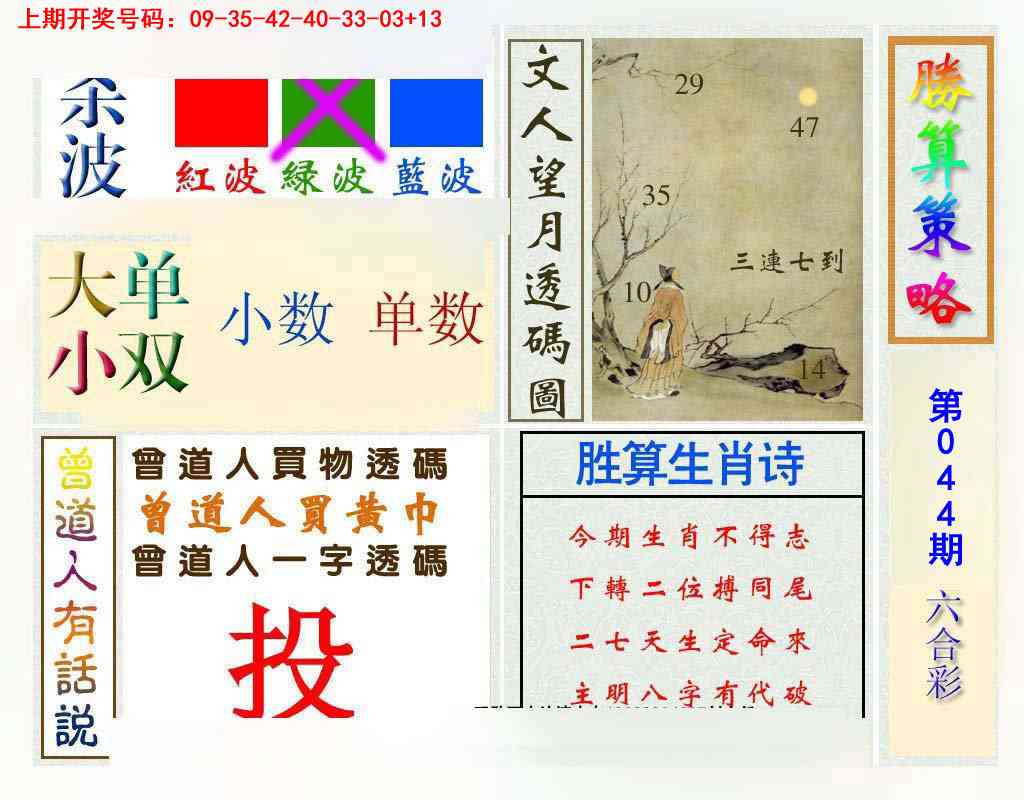 上期开奖号码：09-35-42-40-33-03+13
杀波
紅波
緑波
藍波
大单
小双
小数
单数
文人望月透碼圖
29
47
35
三連七到
10
14
勝算策略
第044期
六合彩
曾道人有話説
曾道人買物透碼
曾道人買黃巾
曾道人一字透碼
投
胜算生肖诗
今期生肖不得志
下轉二位搏同尾
二七天生定命來
主明八字有代破